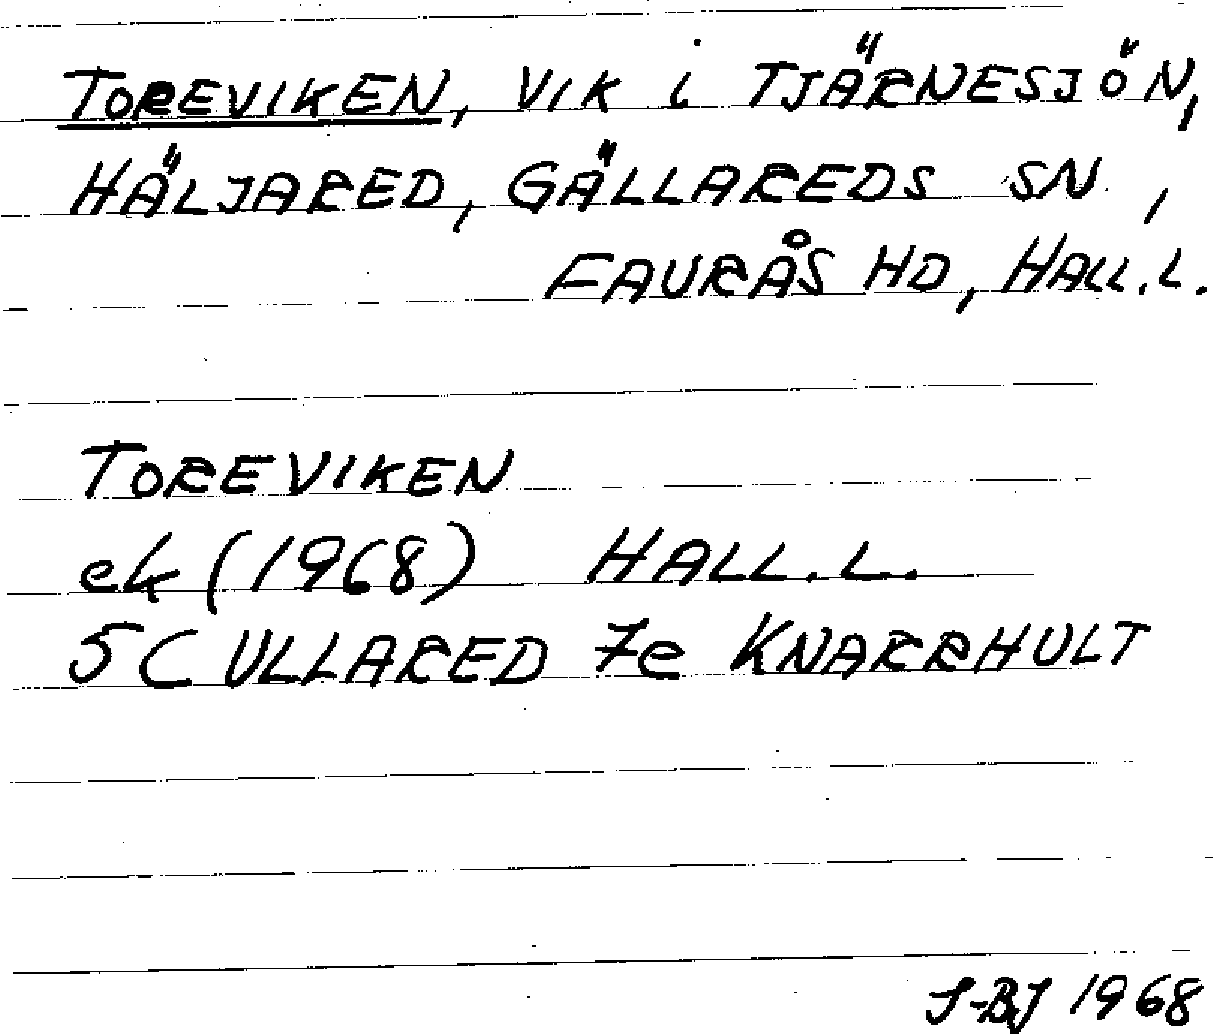 TOREVIKEN, VIK i TJÄRNESJÖN,
HÄLJARED, GÄLLAREDS SN,
FAURÅS HD, HALL.L.
TOREVIKEN
ek (1968) HALL.L.
5C ULLARED 7e KNARRHULT
S-BJ 1968